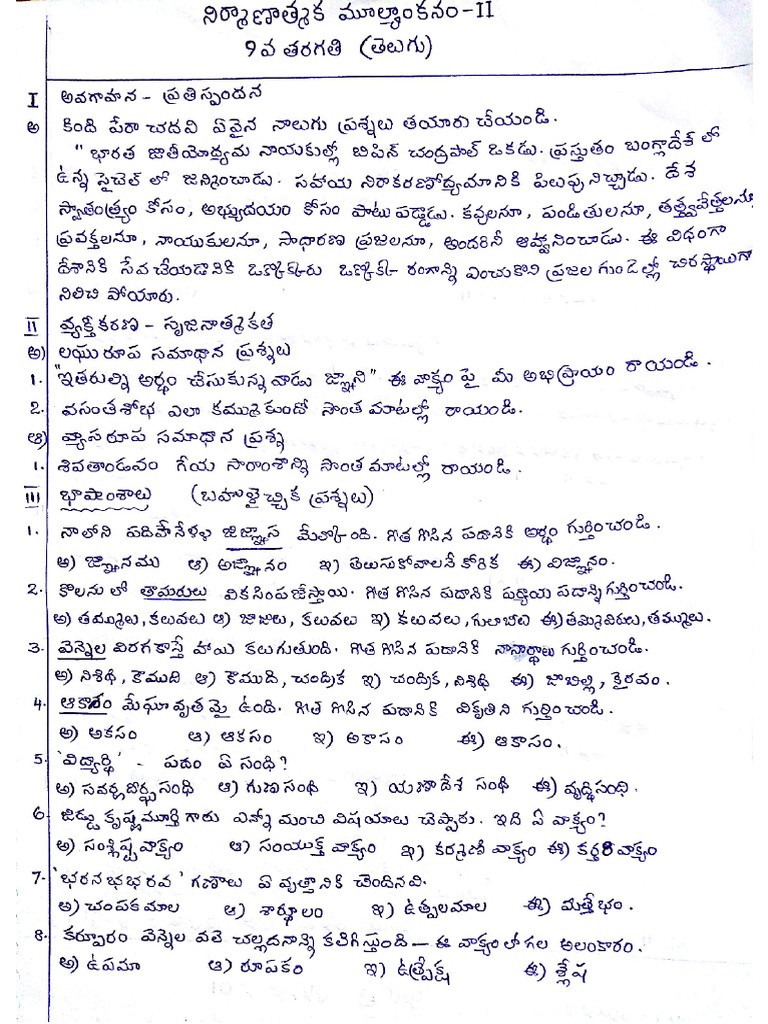 నిర్మాణాత్మక మూల్యాంకనం-II
9వ తరగతి (తెలుగు)
I అవగాహన - ప్రతిస్పందన
అ కింది పేరా చదవి ఏవైన నాలుగు ప్రశ్నలు తయారుచేయండి.
" భారత జాతీయోద్యమ నాయకుల్లో బిపిన్ చంద్రపాల్ ఒకడు. ప్రస్తుతం బంగ్లాదేశ్ లో
ఉన్న సైచెల్ లో జన్మించాడు. సహాయ నిరాకరణోద్యమానికి పిలుపునిచ్చాడు. దేశ
స్వాతంత్ర్యం కోసం, అభ్యుదయం కోసం పాటుపడ్డాడు. కవులనూ, పండితులనూ, తత్త్వవేత్తలనూ,
ప్రవక్తలనూ, నాయకులనూ, సాధారణ ప్రజలనూ, అందరినీ ఆహ్వానించాడు. ఈ విధంగా
దేశానికి సేవచేయడానికి ఒక్కొక్కరు ఒక్కొక్క రంగాన్ని ఎంచుకొని ప్రజల గుండెల్లో చిరస్థాయిగా
నిలిచి పోయారు.
II వ్యక్తీకరణ - సృజనాత్మకత
అ) లఘురూప సమాధాన ప్రశ్నలు
1. "ఇతరుల్ని అర్థం చేసుకున్నవాడు జ్ఞాని" ఈ వాక్యం పై మీ అభిప్రాయం రాయండి.
2. వసంతశోభ ఎలా కమ్ముకుందో సొంతమాటల్లో రాయండి.
ఆ) వ్యాసరూప సమాధాన ప్రశ్న
1. శివతాండవం గేయ సారాంశాన్ని సొంతమాటల్లో రాయండి.
III భాషాంశాలు (బహుళైచ్ఛిక ప్రశ్నలు)
1. నాలోని పదిహేనేళ్ళ జిజ్ఞాస మేల్కొంది. గీత గీసిన పదానికి అర్థం గుర్తించండి.
అ) జ్ఞానము ఆ) అజ్ఞానం ఇ) తెలుసుకోవాలనే కోరిక ఈ) విజ్ఞానం.
2. కొలనులో తామరులు వికసింపజేస్తాయి. గీత గీసిన పదానికి పర్యాయ పదాన్ని గుర్తించండి.
అ) తమ్ములు, కలువలు ఆ) జాజులు, కలువలు ఇ) కలువలు, గులాబీలు ఈ) తమ్మివిరులు, తమ్ములు.
3. వెన్నెల విరగకాస్తే హాయి కలుగుతుంది. గీత గీసిన పదానికి నానార్థాలు గుర్తించండి.
అ) నిశీథి, కౌముది ఆ) కౌముది, చంద్రిక ఇ) చంద్రిక, నిశిథి ఈ) జాబిల్లి, కైరవం.
4. ఆకాశం మేఘావృతమై ఉంది. గీత గీసిన పదానికి వికృతిని గుర్తించండి.
అ) అకసం ఆ) ఆకసం ఇ) అకాసం ఈ) ఆకాసం.
5. 'విద్యార్థి' - పదం ఏ సంధి?
అ) సవర్ణదీర్ఘసంధి ఆ) గుణసంధి ఇ) యణాదేశ సంధి ఈ) వృద్ధిసంధి.
6. జిడ్డు కృష్ణమూర్తి గారు ఎన్నో మంచి విషయాలు చెప్పారు. ఇది ఏ వాక్యం?
అ) సంశ్లిష్టవాక్యం ఆ) సంయుక్త వాక్యం ఇ) కర్మణి వాక్యం ఈ) కర్తరి వాక్యం
7. 'భరనభభరవ' గణాలు ఏ వృత్తానికి చెందినవి.
అ) చంపకమాల ఆ) శార్థూలం ఇ) ఉత్పలమాల ఈ) మత్తేభం.
8. కర్పూరం వెన్నెల వలె చల్లదనాన్ని కలిగిస్తుంది - ఈ వాక్యంలో గల అలంకారం.
అ) ఉపమా ఆ) రూపకం ఇ) ఉత్ప్రేక్ష ఈ) శ్లేష